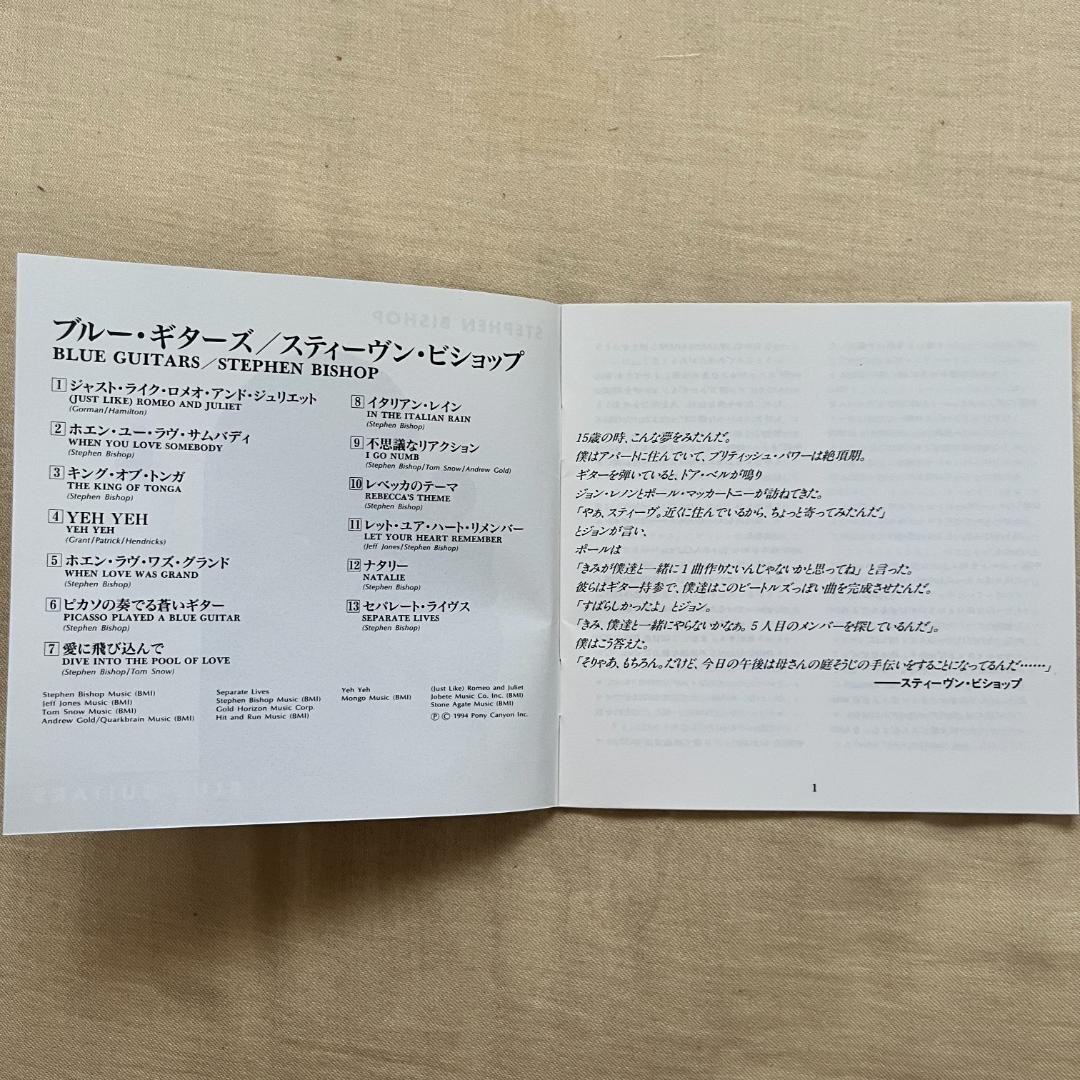 ブルー・ギターズ／スティーヴン・ビショップ
BLUE GUITARS／STEPHEN BISHOP
1 ジャスト・ライク・ロメオ・アンド・ジュリエット
(JUST LIKE) ROMEO AND JULIET
(Gorman/Hamilton)
2 ホエン・ユー・ラヴ・サムバディ
WHEN YOU LOVE SOMEBODY
(Stephen Bishop)
3 キング・オブ・トンガ
THE KING OF TONGA
(Stephen Bishop)
4 YEH YEH
YEH YEH
(Grant/Patrick/Hendricks)
5 ホエン・ラヴ・ワズ・グランド
WHEN LOVE WAS GRAND
(Stephen Bishop)
6 ピカソの奏でる蒼いギター
PICASSO PLAYED A BLUE GUITAR
(Stephen Bishop)
7 愛に飛び込んで
DIVE INTO THE POOL OF LOVE
(Stephen Bishop/Tom Snow)
8 イタリアン・レイン
IN THE ITALIAN RAIN
(Stephen Bishop)
9 不思議なリアクション
I GO NUMB
(Stephen Bishop/Tom Snow/Andrew Gold)
10 レベッカのテーマ
REBECCA'S THEME
(Stephen Bishop)
11 レット・ユア・ハート・リメンバー
LET YOUR HEART REMEMBER
(Jeff Jones/Stephen Bishop)
12 ナタリー
NATALIE
(Stephen Bishop)
13 セパレート・ライヴス
SEPARATE LIVES
(Stephen Bishop)
Stephen Bishop Music (BMI)
Jeff Jones Music (BMI)
Tom Snow Music (BMI)
Andrew Gold/Quarkbrain Music (BMI)
Separate Lives
Stephen Bishop Music (BMI)
Gold Horizon Music Corp.
Hit and Run Music (BMI)
Yeh Yeh
Mongo Music (BMI)
(Just Like) Romeo and Juliet
Jobete Music Co. Inc. (BMI)
Stone Agate Music (BMI)
Ⓟ © 1994 Pony Canyon Inc.
15歳の時、こんな夢をみたんだ。
僕はアパートに住んでいて、ブリティッシュ・パワーは絶頂期。
ギターを弾いていると、ドア・ベルが鳴り
ジョン・レノンとポール・マッカートニーが訪ねてきた。
「やあ、スティーヴ。近くに住んでいるから、ちょっと寄ってみたんだ」
とジョンが言い、
ポールは
「きみが僕達と一緒に1曲作りたいんじゃないかと思ってね」と言った。
彼らはギター持参で、僕達はこのビートルズっぽい曲を完成させたんだ。
「すばらしかったよ」とジョン。
「きみ、僕達と一緒にやらないかなあ。5人目のメンバーを探しているんだ」。
僕はこう答えた。
「そりゃあ、もちろん。だけど、今日の午後は母さんの庭そうじの手伝いをすることになってるんだ……」
——スティーヴン・ビショップ
1